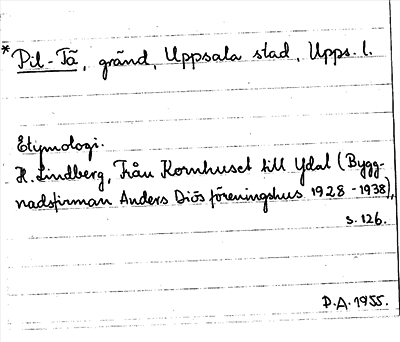 * Pil-Tå, gränd, Uppsala stad, Upps. l.
Etymologi.
H. Lindberg, Från Kornhuset till Ydal (Bygg-
nadsfirman Anders Diös föreningshus 1928-1938),
s. 126.
P.A. 1955.